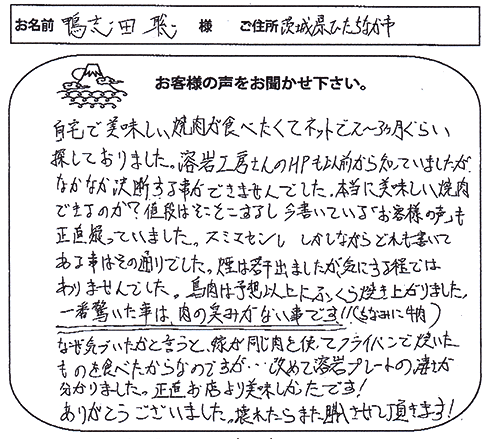 お名前 鴨志田 聡 様 ご住所 茨城県ひたちなか市
お客様の声をお聞かせ下さい。
自宅で美味しい焼肉が食べたくてネットで2〜3ヶ月ぐらい
探しておりました。溶岩工房さんのHPも以前から知っていましたが
なかなか決断する事ができませんでした。本当に美味しい焼肉
できるのか?値段はそこそこするし今書いている「お客様の声」も
正直疑っていました。スミマセン! しかしながらどれも書いて
ある事はその通りでした。煙は若干出ましたが気にする程では
ありませんでした。鳥肉は予想以上にふっくら焼き上がりました。
一番驚いた事は、肉の臭みがない事です!!(ちなみに牛肉)
なぜ気づいたかと言うと、嫁が同じ肉を使ってフライパンで焼いた
ものを食べたからなのですが…改めて溶岩プレートの凄さが
分かりました。正直お店より美味しかったです!
ありがとうございました。壊れたらまた購入させて頂きます!